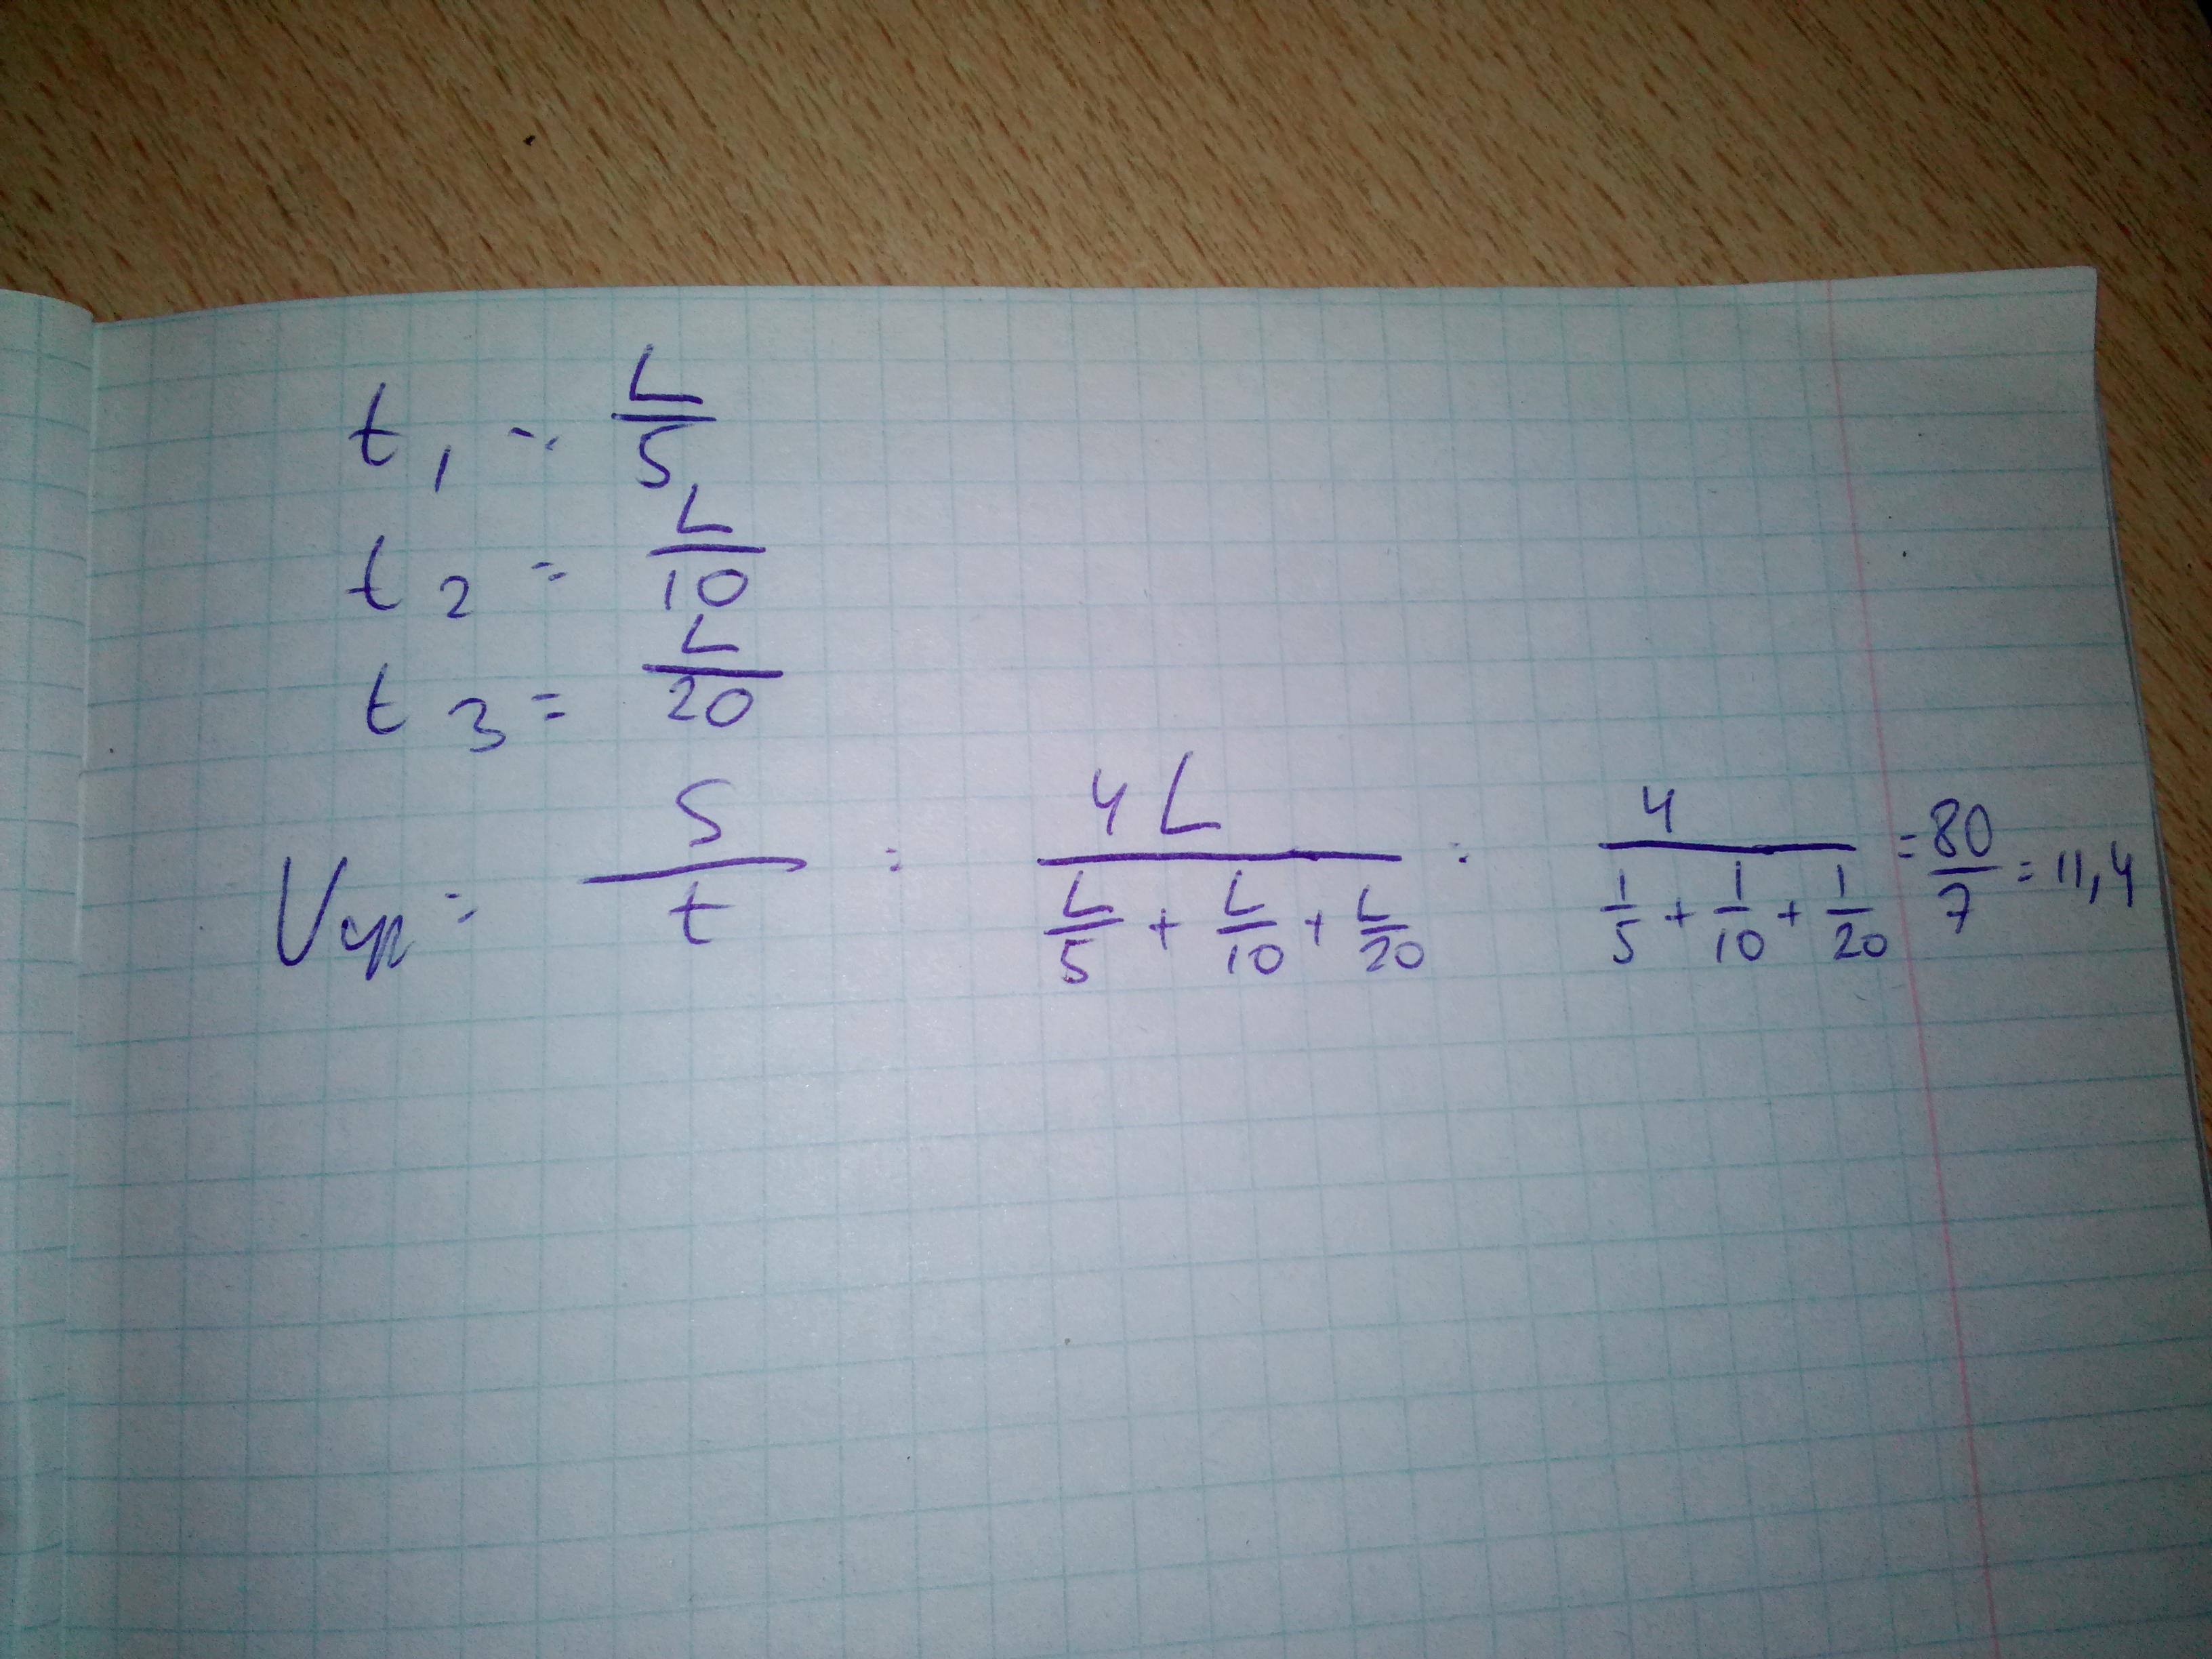 t₁ = L/5
t₂ = L/10
t₃ = L/20
Vср = S/t = 4L/(L/5 + L/10 + L/20) = 4/(1/5 + 1/10 + 1/20) = 80/7 = 11,4